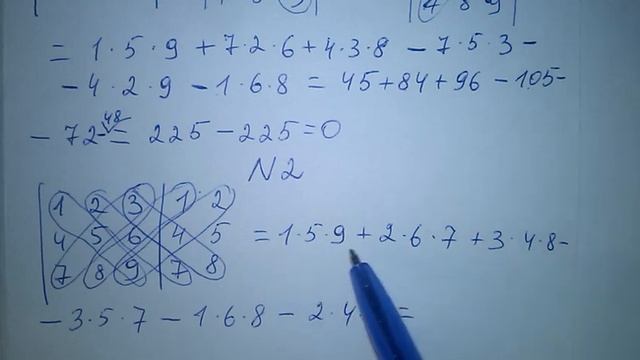 4 8 9
= 1·5·9 + 7·2·6 + 4·3·8 - 7·5·3 -
- 4·2·9 - 1·6·8 = 45 + 84 + 96 - 105 -
- 72 - 48 = 225 - 225 = 0
N2
1 2 3 1 2
4 5 6 4 5 = 1·5·9 + 2·6·7 + 3·4·8 -
7 8 9 7 8
- 3·5·7 - 1·6·8 - 2·4· =